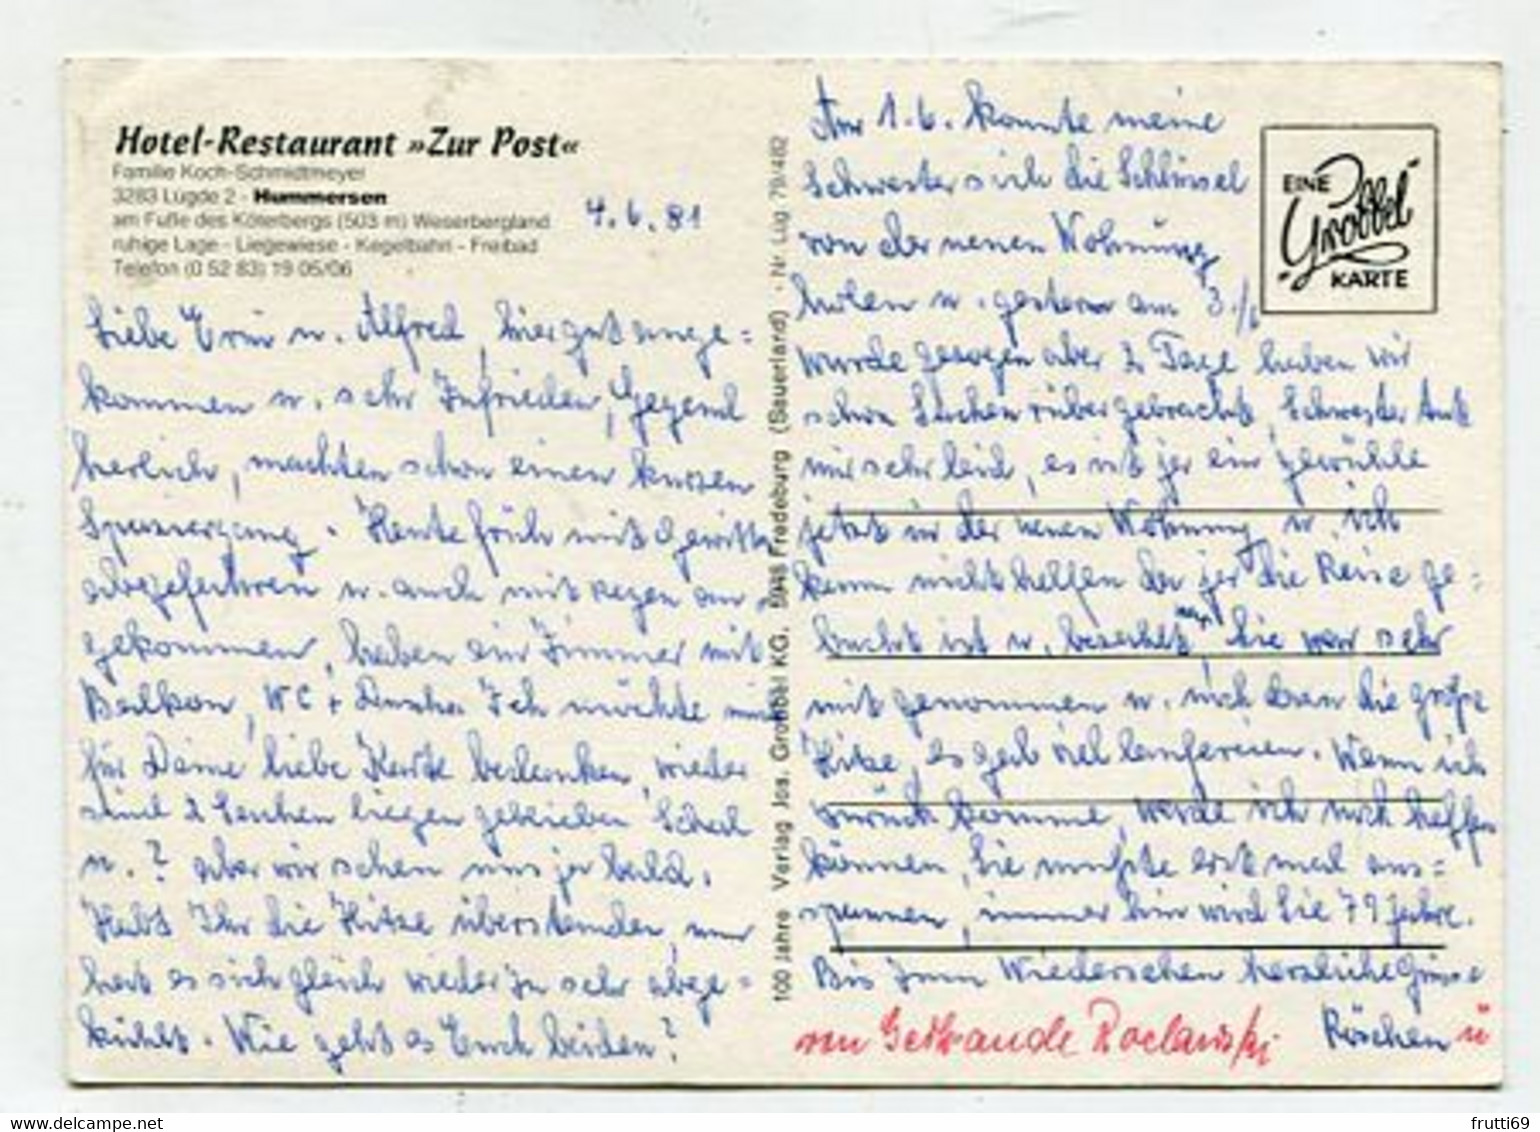 Hotel-Restaurant »Zur Post«
Familie Koch-Schmidtmeyer
3283 Lügde 2 - Hummersen
am Fuße des Köterbergs (503 m) Weserbergland
ruhige Lage - Liegewiese - Kegelbahn - Freibad
Telefon (0 52 83) 19 05/06
4.6.81
Liebe u. Alfred, hier gut ange=
kommen u. sehr zufrieden, Gegend
herlich, machten schon einen kurzen
Spaziergang. Heute früh mit Gewitter
abgefahren u. auch mit Regen an=
gekommen, haben ein Zimmer mit
Balkon, WC + Dusche. Ich möchte mich
für Deine liebe Karte bedanken, wieder
sind 2 Sachen liegen geblieben Schal
u. ? aber wir sehen uns ja bald.
Habt Ihr die Hitze überstanden, nun
hat es sich gleich wieder zu sehr abge=
kühlt. Wie geht es Euch beiden?
100 Jahre Verlag Jos. Grobbel KG, 5948 Fredeburg (Sauerland) - Nr. Lüg 79/482
Am 1.6. konnte meine
Schwester sich die Schlüssel
von der neuen Wohnung
holen u. gestern am 3./6
wurde gezogen aber 2 Tage haben wir
schon Sachen rüber gebracht, Schwester tut
mir sehr leid, es ist ja ein gewühle
jetzt in der neuen Wohnung u. ich
kann nicht helfen da ja die Reise ge=
bucht ist u. bezahlt war Sie war sehr
mit genommen u. noch dazu die große
Hitze, es gab viel laufereien. Wenn ich
zurück komme, werde ich noch helfen
können, Sie mußte erst mal aus=
spannen, immer hin wird Sie 79 Jahre.
Bis zum Wiedersehen herzliche Grüsse
Röschen u
von Gertraude
EINE
Grobbel
KARTE
delcampe.net
frutti69